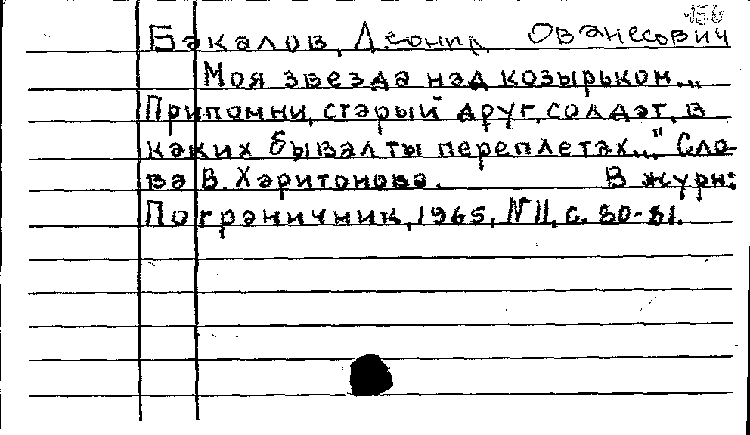 156
Бакалов, Леонид Ованесович
Моя звезда над козырьком...
Припомни, старый друг, солдат, в
каких бывал ты переплетах..." Сло-
ва В. Харитонова. В журн:
Пограничник, 1965, № 11, с. 80-81.